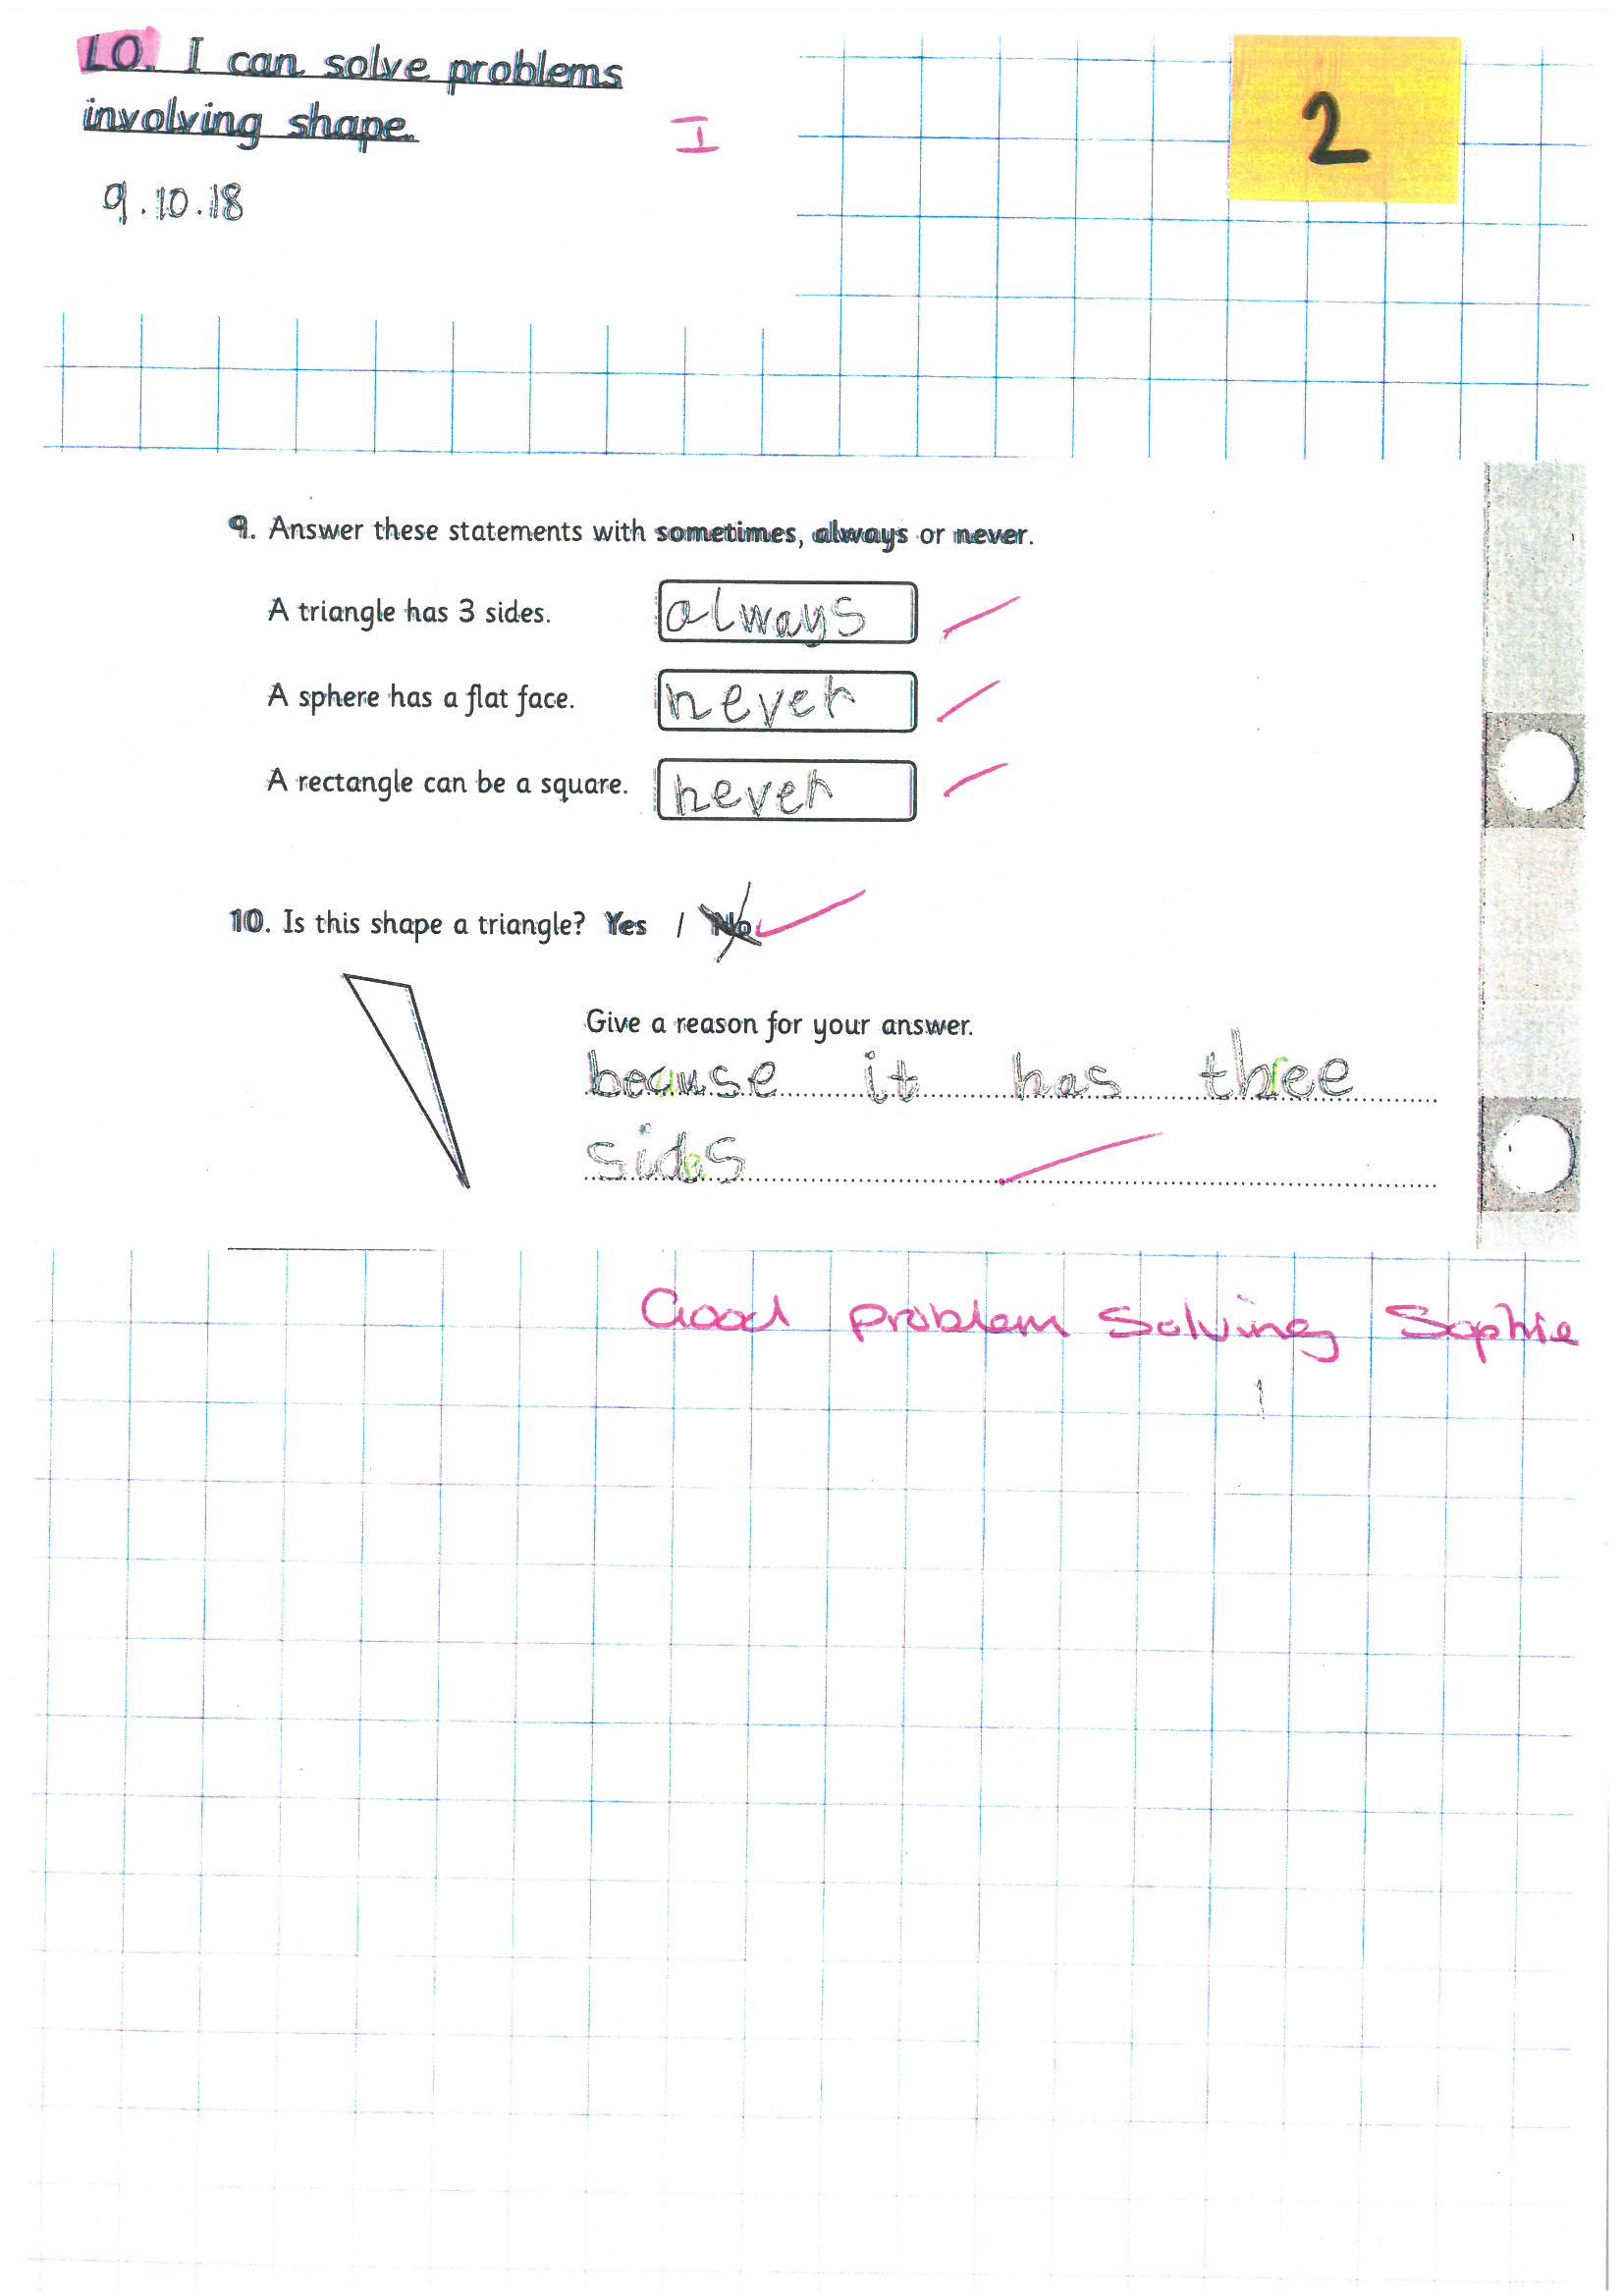 LO. I can solve problems
involving shape.
I
2
9.10.18
9. Answer these statements with sometimes, always or never.
A triangle has 3 sides. always
A sphere has a flat face. never
A rectangle can be a square. never
10. Is this shape a triangle? Yes / No
Give a reason for your answer.
because it has three
sides
Good problem solving Sophie